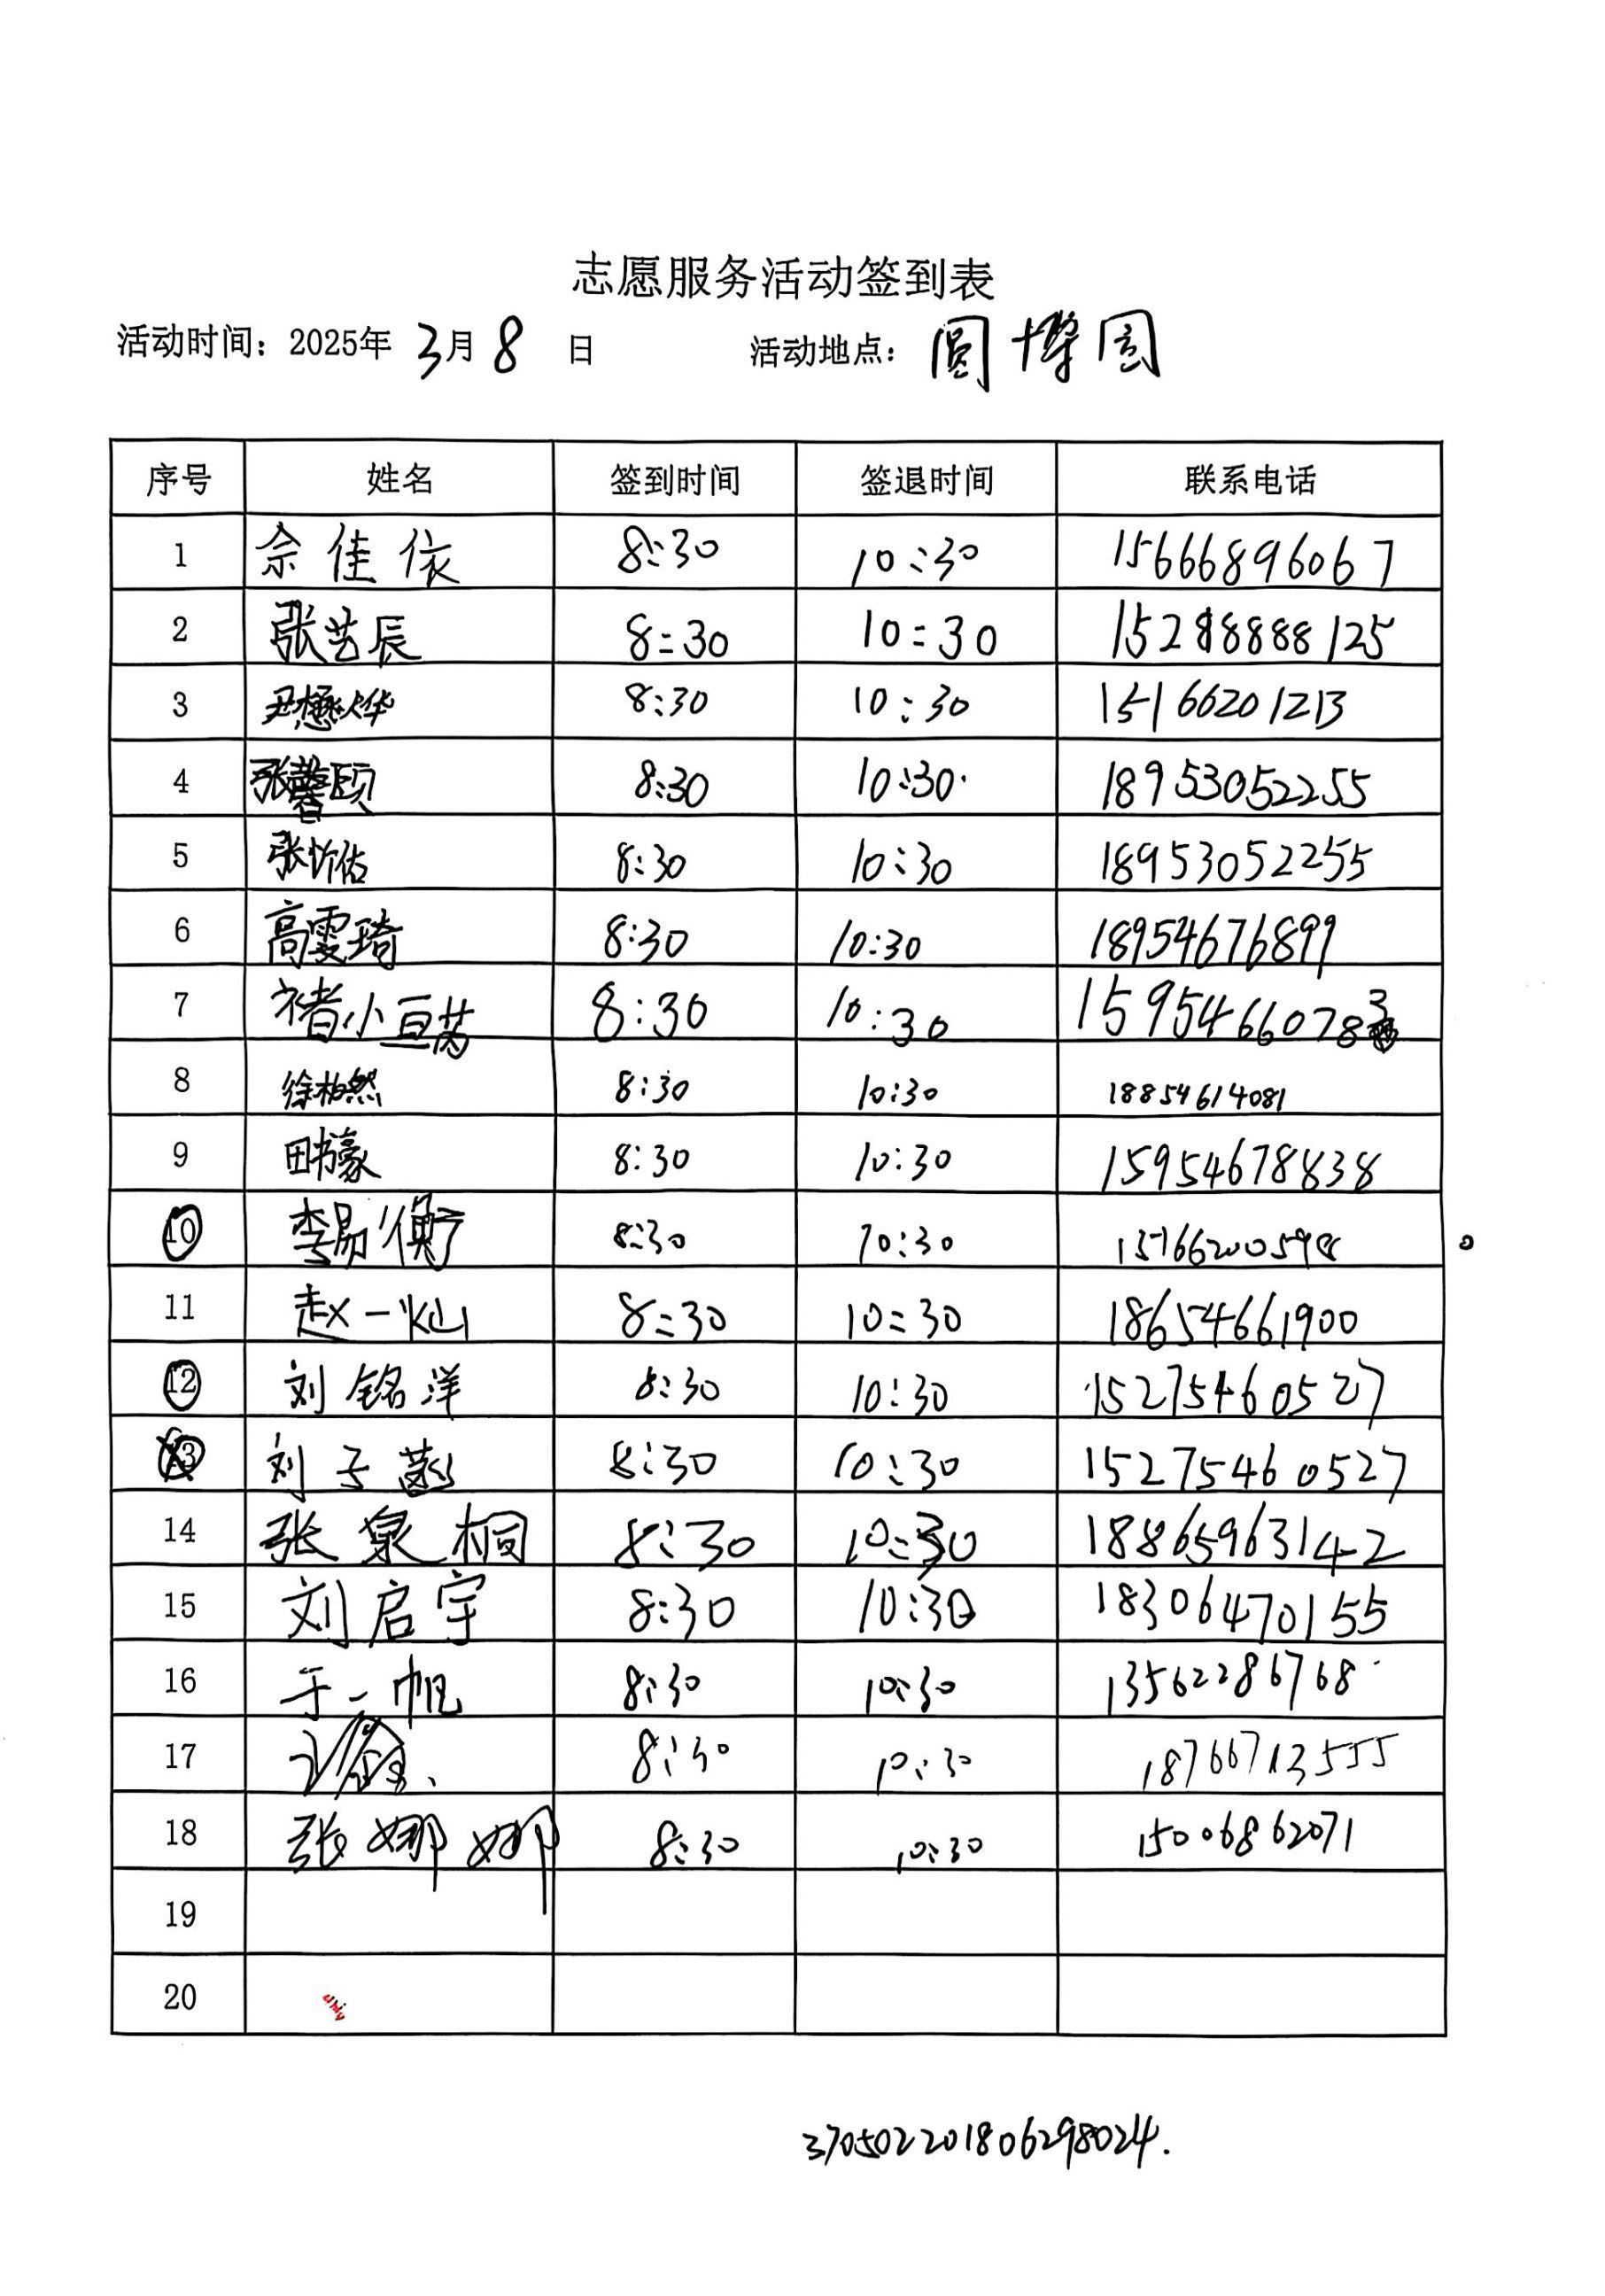 志愿服务活动签到表
活动时间：2025年 3月 8 日 活动地点：圆博园
序号 姓名 签到时间 签退时间 联系电话
1 佘佳依 8:30 10:30 15666896067
2 张艺辰 8:30 10:30 15288888125
3 尹懋烨 8:30 10:30 15166201213
4 张馨颐 8:30 10:30 18953052255
5 张忻佑 8:30 10:30 18953052255
6 高雯琦 8:30 10:30 18954676899
7 褚小豆芮 8:30 10:30 15954660783
8 徐柏然 8:30 10:30 18854614081
9 田书豪 8:30 10:30 15954678838
10 李易衡 8:30 10:30
11 赵一灿 8:30 10:30 18654661900
12 刘铭洋 8:30 10:30 15275460527
13 刘子菡 8:30 10:30 15275460527
14 张泉桐 8:30 10:30 18865963142
15 刘启宇 8:30 10:30 18306470155
16 于一帆 8:30 10:30 13562286768
17 8:30 10:30 18766713555
18 张娜娜 8:30 10:30 15006862071
19
20
370502201806298024.